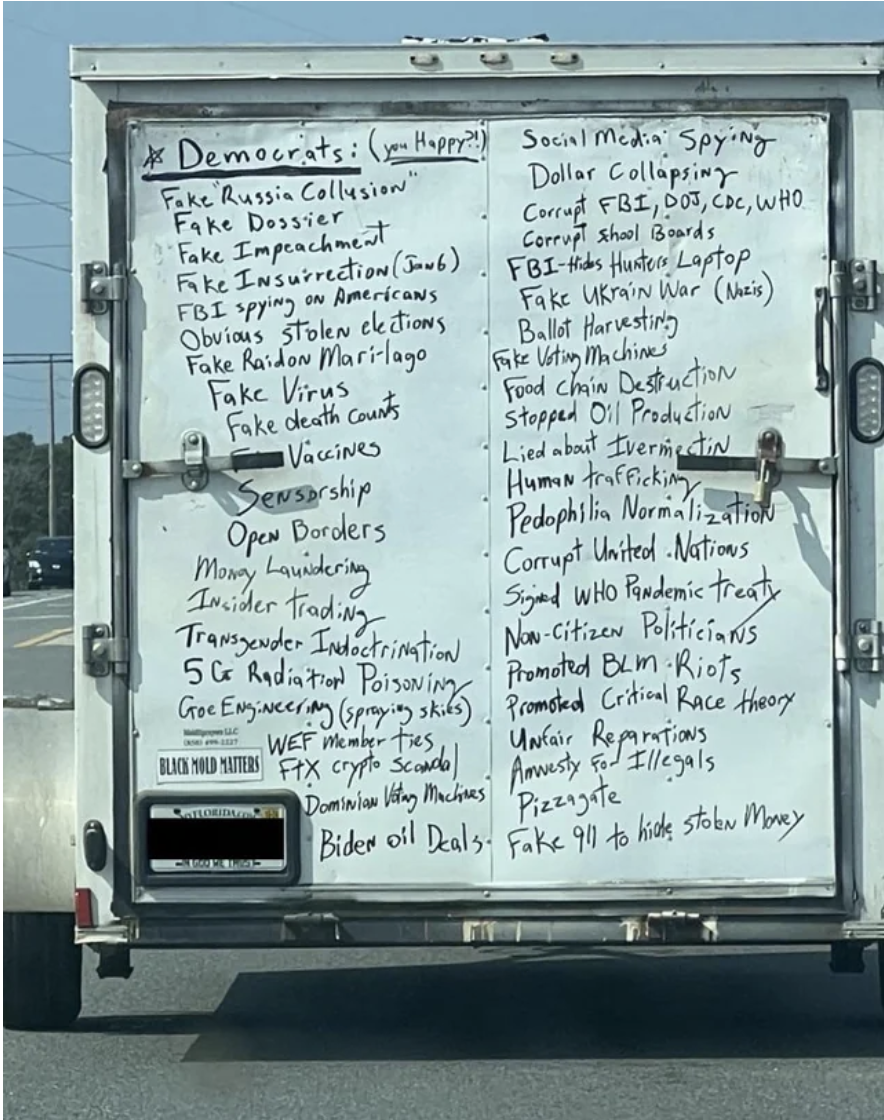 ☆ Democrats: (you Happy?!)
Fake "Russia Collusion"
Fake Dossier
Fake Impeachment
Fake Insurrection (Jan 6)
FBI spying on Americans
Obvious stolen elections
Fake Raidon Mari-lago
Fake Virus
Fake death counts
Vaccines
Sensorship
Open Borders
Money Laundering
Insider trading
Transgender Indoctrination
5G Radiation Poisoning
Goe Engineering (spraying skies)
WEF member ties
FTX crypto Scandal
Dominian Voting Machines
Biden oil Deals
LLC
BLACK MOLD MATTERS
MYFLORIDA.COM
IN GOD WE TRUST
Social Media Spying
Dollar Collapsing
Corrupt FBI, DOJ, CDC, WHO
Corrupt School Boards
FBI-Hides Hunters Laptop
Fake UKrain War (Nazis)
Ballot Harvesting
Fake Voting Machines
Food chain Destruction
Stopped Oil Production
Lied about Ivermectin
Human trafficking
Pedophilia Normalization
Corrupt United Nations
Signed WHO Pandemic treaty
Non-Citizen Politicians
Promoted BLM Riots
Promoted Critical Race theory
Unfair Reparations
Amnesty For Illegals
Pizzagate
Fake 911 to hide stolen Money